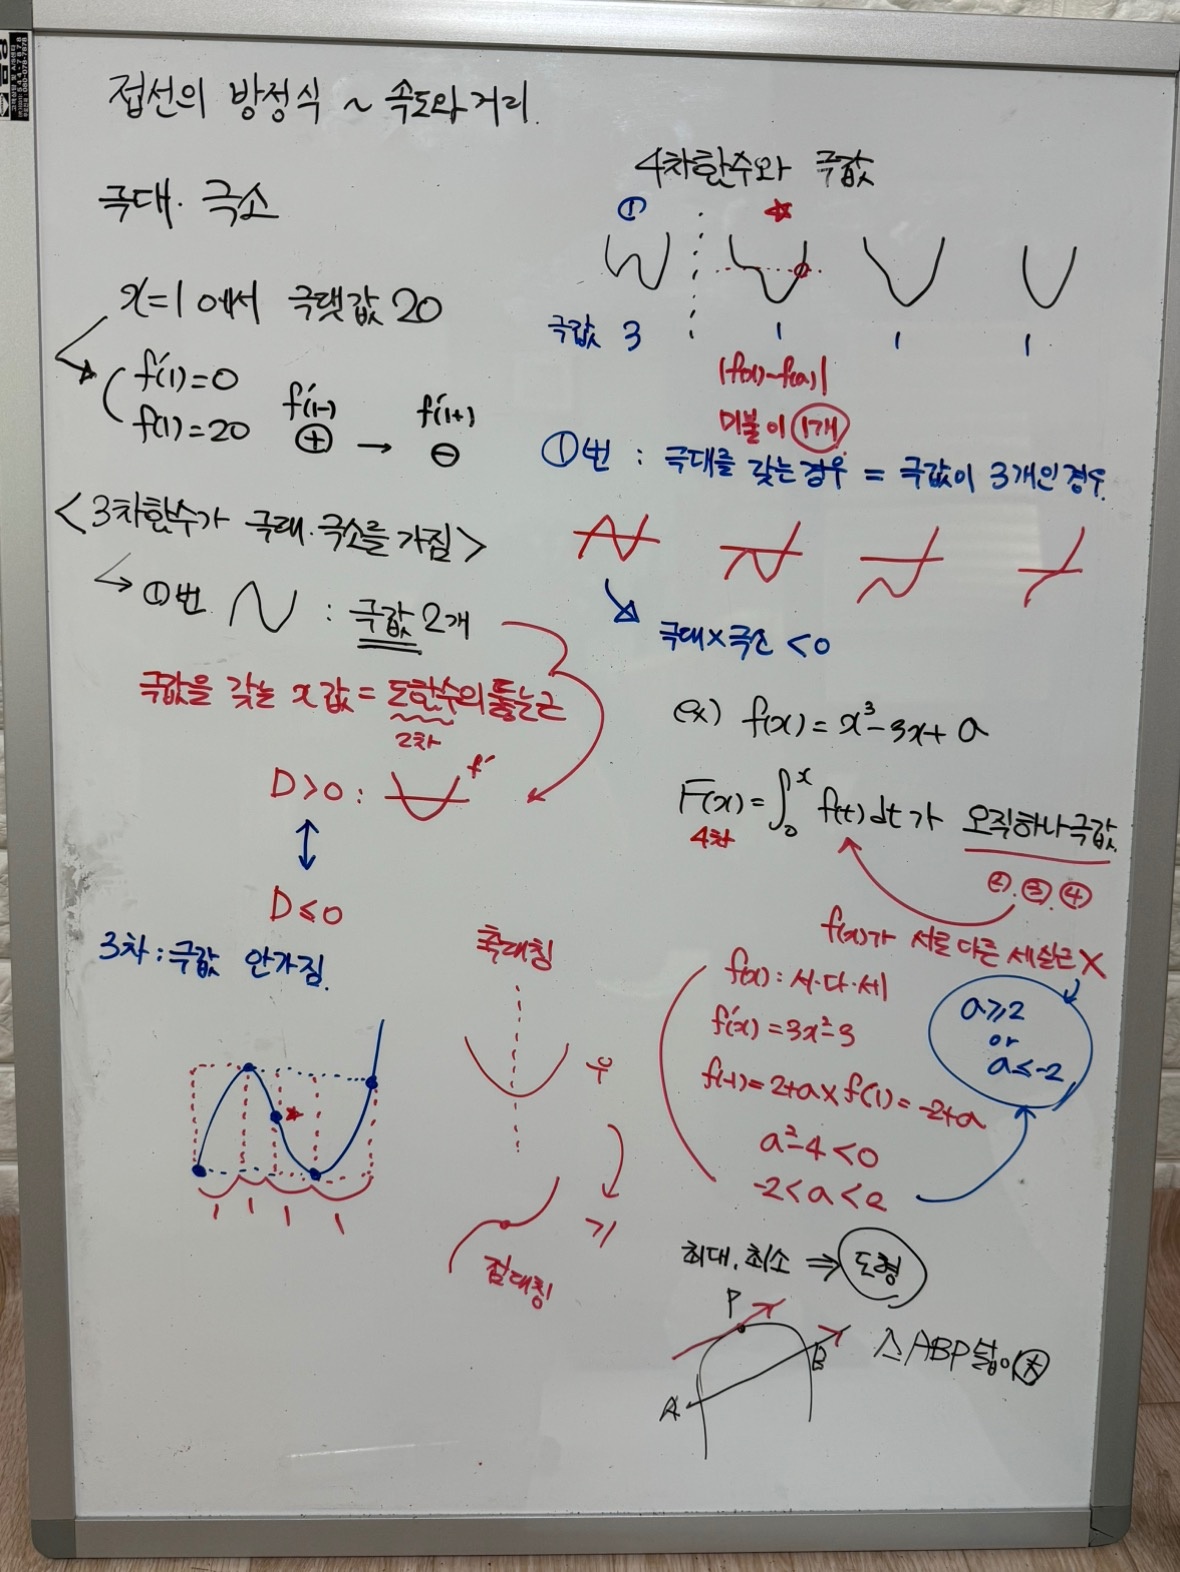 접선의 방정식 ~ 속도와 거리.
극대·극소
x=1에서 극댓값 20
f'(1)=0
f(1)=20
f'(1-)
⊕ →
f'(1+)
⊖
<3차함수가 극대·극소를 가짐>
①번 : 극값 2개
극값을 갖는 x값 = 도함수의 뚫는근
2차
D>0 : f'
D≤0
3차 : 극값 안가짐.
1 1 1 1
축대칭
우
기
점대칭
4차함수와 극값
①
극값 3 1 1 1
|f(x)-f(a)|
미불이 1개
①번 : 극대를 갖는경우 = 극값이 3개인경우.
극대×극소 <0
ex) f(x) = x³-3x+a
F(x) = ∫₀ˣ f(t)dt가 오직하나극값.
4차
②.③.④
f(x)가 서로다른 세실근 X
f(x) : 서·다·세
f'(x) = 3x²-3
f(-1)=2+a × f(1)=-2+a
a²-4<0
-2<a<2
a≥2
or
a≤-2
최대.최소 ⇒ 도형
P
A
B
△ABP넓이 大